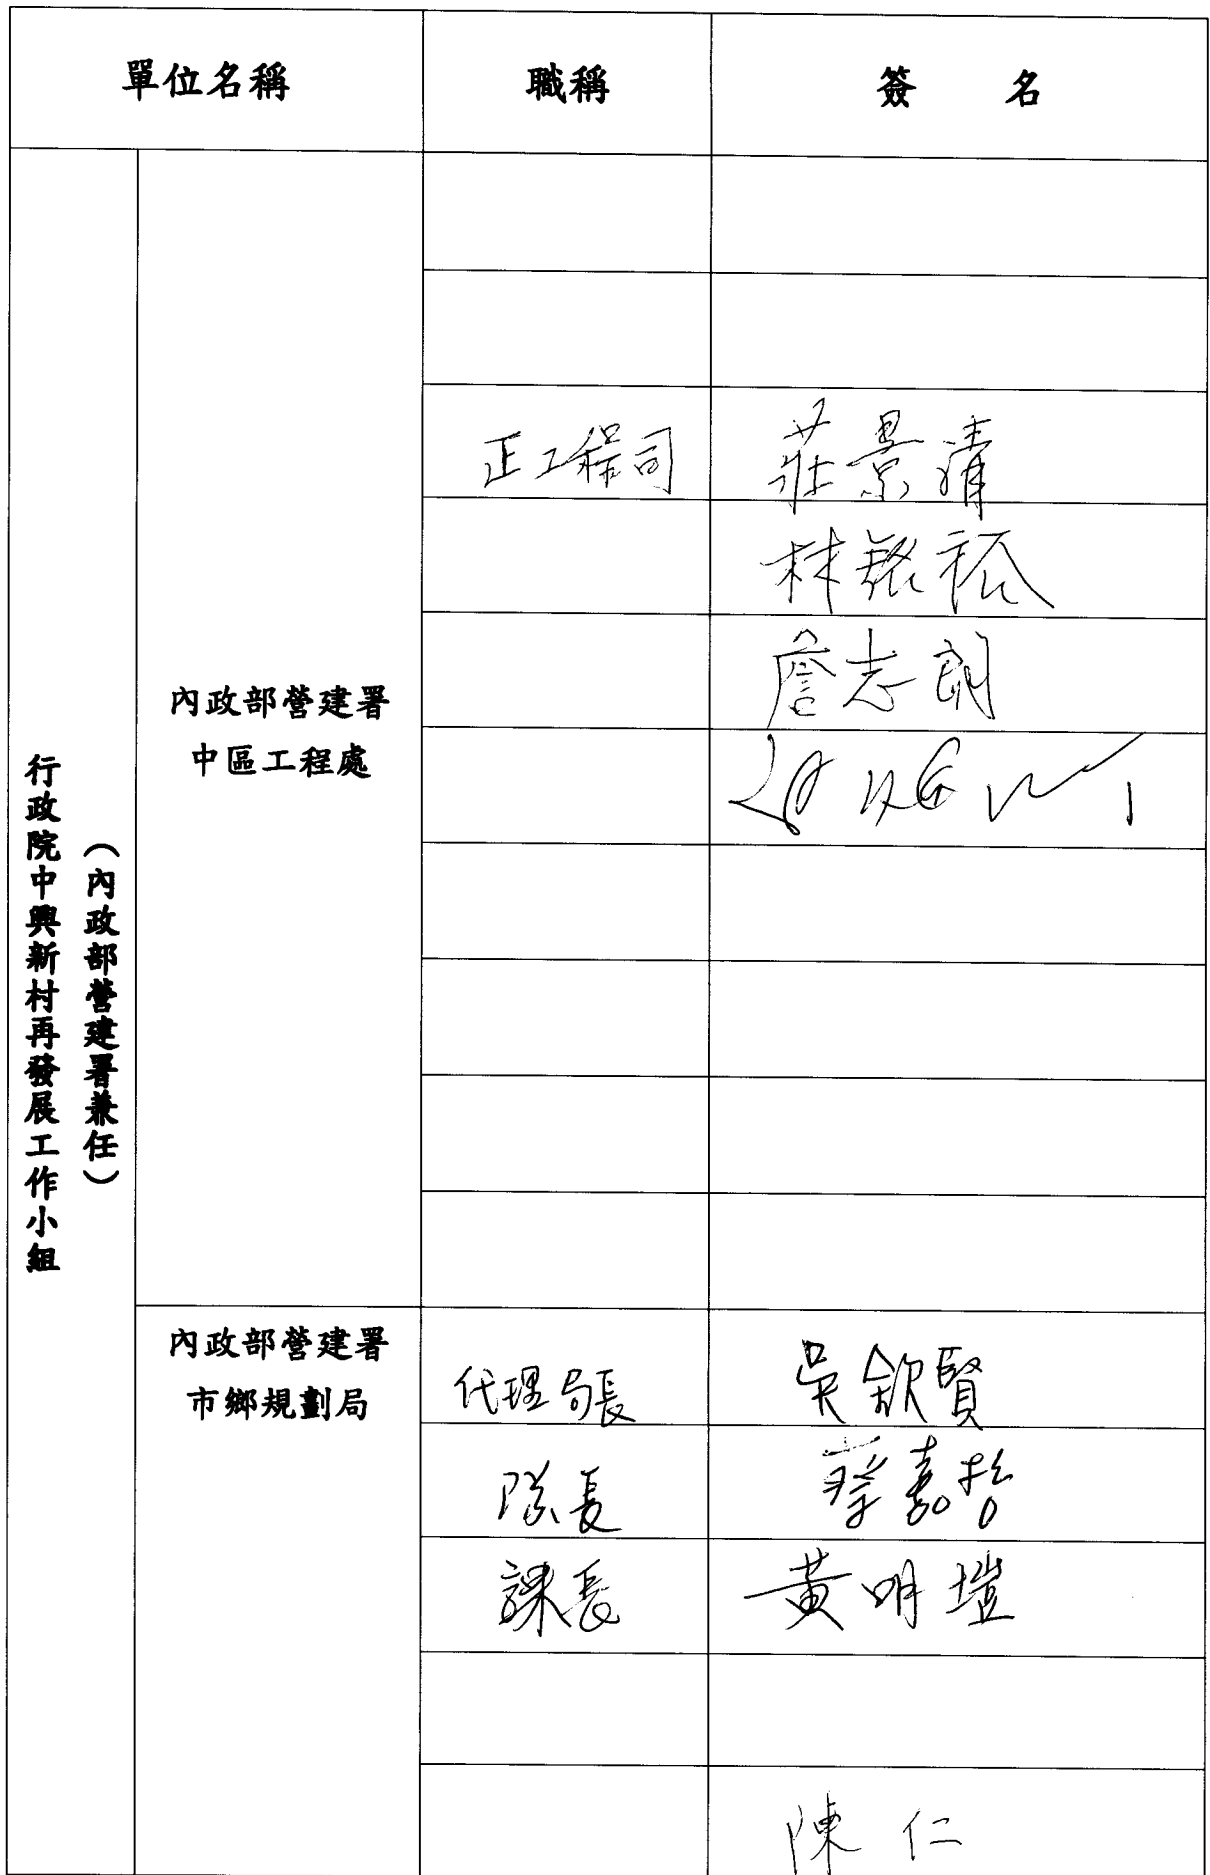 單位名稱 職稱 簽 名
行政院中興新村再發展工作小組
（內政部營建署兼任）
內政部營建署
中區工程處
正工程司 莊景清
林銘
詹志朗
內政部營建署
市鄉規劃局
代理局長 吳欽賢
隊長 蔡嘉哲
課長 黃明塏
陳 仁